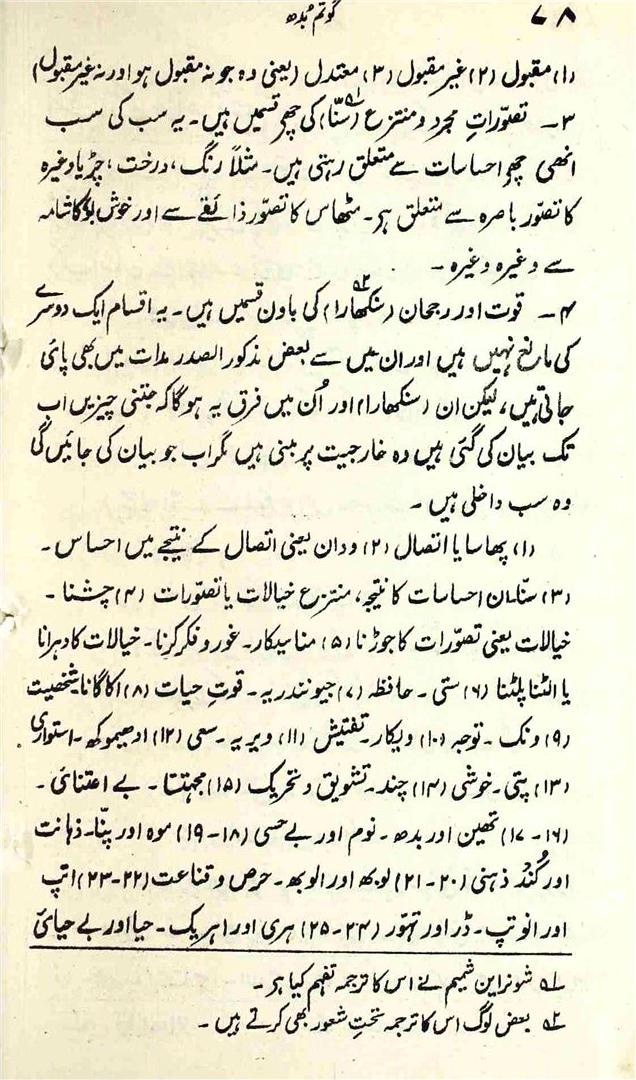 ۷۸
گوتم بُدھ
(۱) مقبول (۲) غیر مقبول (۳) معتدل (یعنی وہ جو نہ مقبول ہو اور نہ غیر مقبول)
۳ـ تصوّراتِ مجرد و منتزع (سنّا)۱؎ کی چھ قسمیں ہیں۔ یہ سب کی سب
انھی چھ احساسات سے متعلق رہتی ہیں۔ مثلاً رنگ، درخت، چڑیا وغیرہ
کا تصوّر باصرہ سے متعلق ہر۔ مٹھاس کا تصوّر ذائقے سے اور خوش بو کا شامہ
سے وغیرہ وغیرہ ۔
۴ـ قوت اور رجحان (سنکھارا)۲؎ کی باون قسمیں ہیں۔ یہ اقسام ایک دوسرے
کی مانع نہیں ہیں اور ان میں سے بعض مذکور الصدر مدات میں بھی پائی
جاتی ہیں، لیکن ان (سنکھارا) اور اُن میں فرق یہ ہوگا کہ جتنی چیزیں اب
تک بیان کی گئی ہیں وہ خارجیت پر مبنی ہیں مگر اب جو بیان کی جائیں گی
وہ سب داخلی ہیں ۔
(۱) پھاسا یا اتصال (۲) ودان یعنی اتصال کے نتیجے میں احساس ۔
(۳) سنّا۔ ان احساسات کا نتیجہ، منتزع خیالات یا تصوّرات (۴) چشنا ۔
خیالات یعنی تصوّرات کا جوڑنا (۵) مناسیکار۔ غور و فکر کرنا۔ خیالات کا دہرانا
یا الٹنا پلٹنا (۶) ستی ۔ حافظہ (۷) جیوندریہ ۔ قوتِ حیات (۸) اکاگانا شخصیت
(۹) ونک ۔ توجہ (۱۰) ویکار۔ تفتیش (۱۱) ویریہ ۔ سعی (۱۲) ادھیموکھ ۔ استواری
(۱۳) پتی۔ خوشی (۱۴) چند۔ تشویق و تحریک (۱۵) مجھتتا ۔ بے اعتنائی ۔
(۱۶-۱۷) تھین اور بدھ ۔ نوم اور بے حسی (۱۸-۱۹) موہ اور پنّا۔ ذہانت
اور کُند ذہنی (۲۰-۲۱) لوبھ اور الوبھ۔ حرص و قناعت (۲۲-۲۳) اتپ
اور انوتپ ۔ ڈر اور تہوّر (۲۴-۲۵) ہری اور اہریک ۔ حیا اور بے حیائی
۱؎ شونراین شمیم نے اس کا ترجمہ تفہم کیا ہر ۔
۲؎ بعض لوگ اس کا ترجمہ تحتِ شعور بھی کرتے ہیں ۔